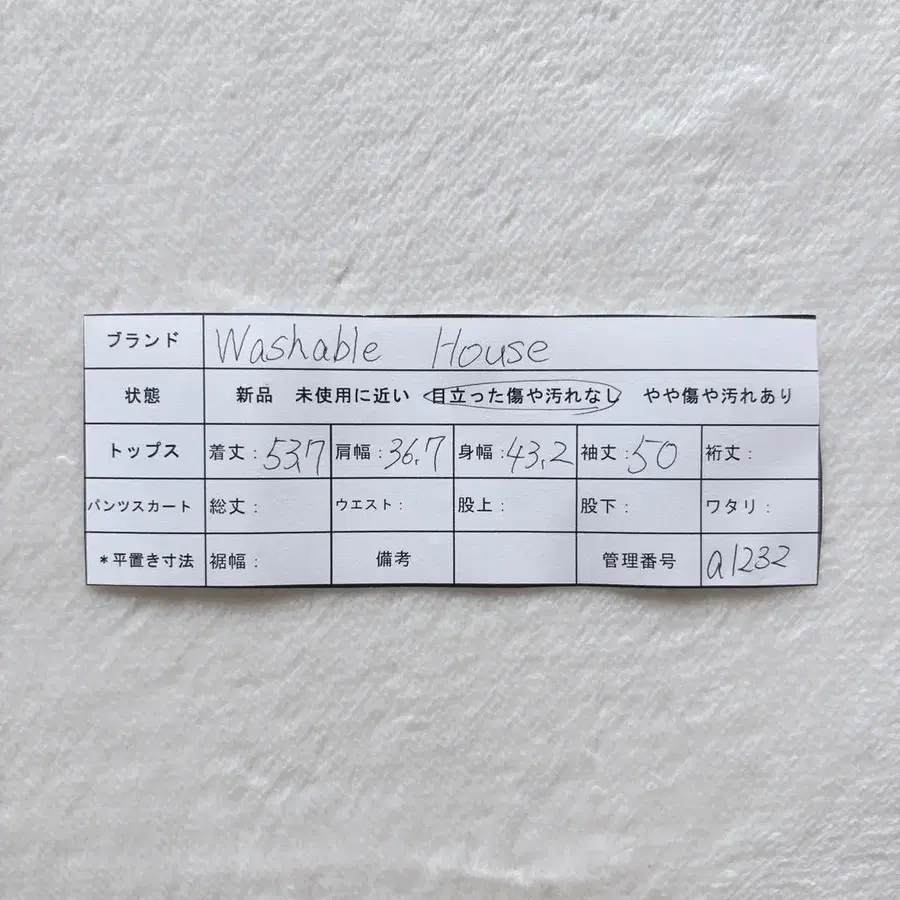 ブランド Washable House
状態 新品 未使用に近い 目立った傷や汚れなし やや傷や汚れあり
トップス 着丈:53.7 肩幅:36.7 身幅:43.2 袖丈:50 裄丈:
パンツスカート 総丈: ウエスト: 股上: 股下: ワタリ:
*平置き寸法 裾幅: 備考 管理番号 a1232